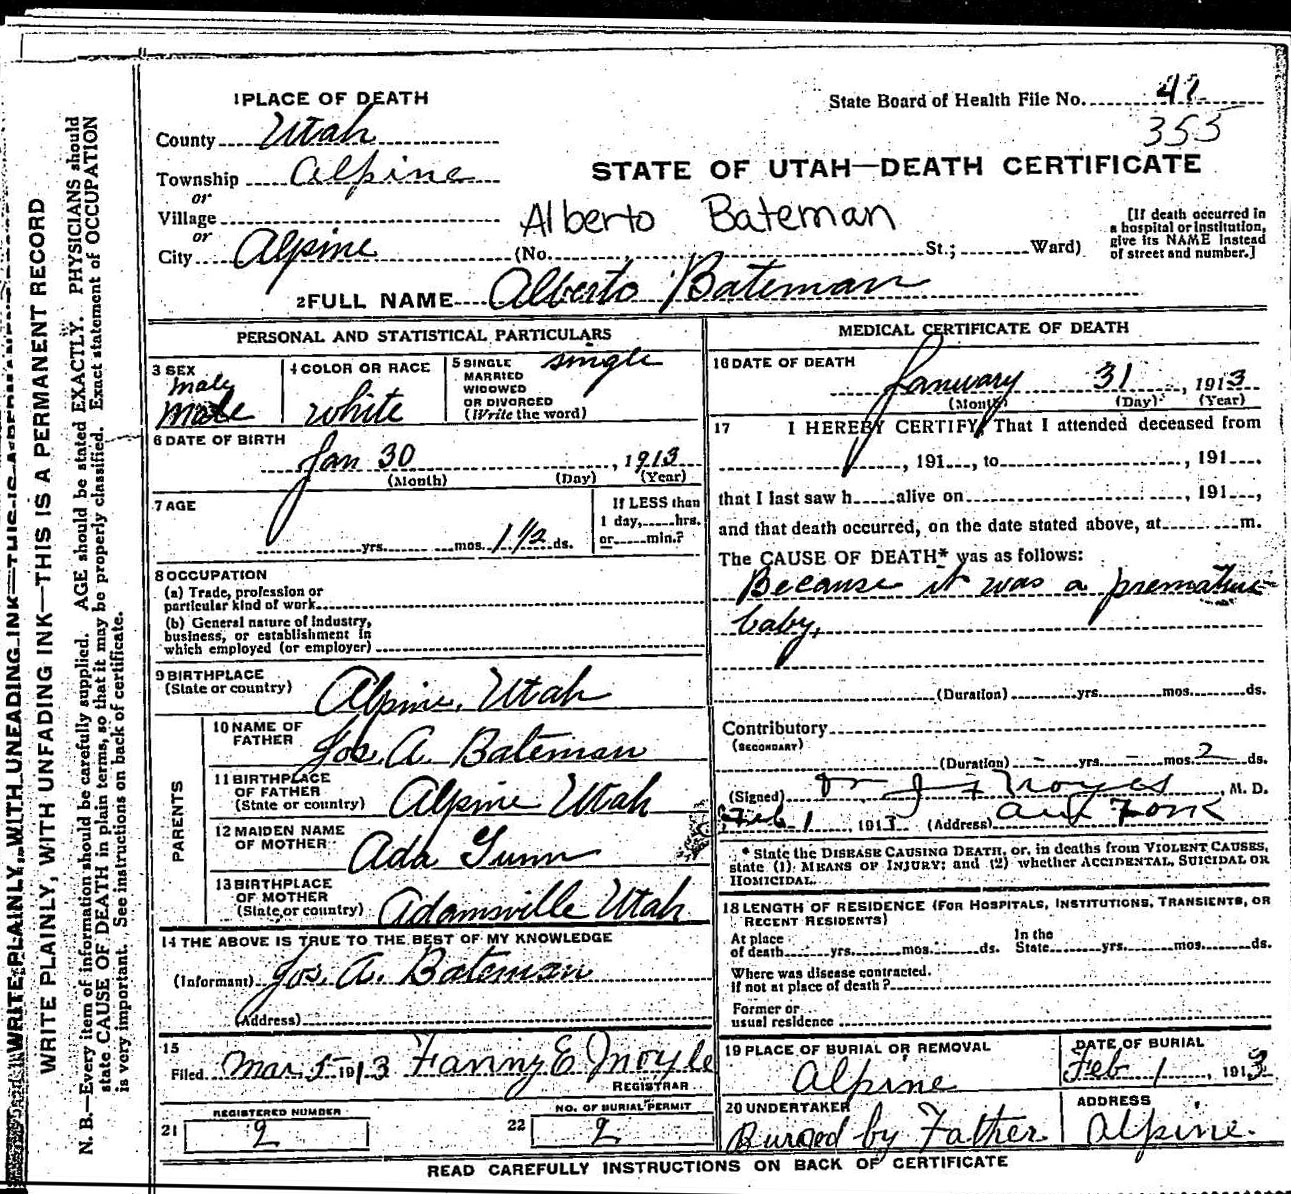 1 PLACE OF DEATH
State Board of Health File No. 47
355
County Utah
Township Alpine
or
Village
or
City Alpine
STATE OF UTAH—DEATH CERTIFICATE
Alberto Bateman
(No. St.; Ward)
[If death occurred in
a hospital or institution,
give its NAME instead
of street and number.]
2 FULL NAME Alberto Bateman
PERSONAL AND STATISTICAL PARTICULARS
3 SEX
male
male
4 COLOR OR RACE
white
5 SINGLE
MARRIED
WIDOWED
OR DIVORCED
(Write the word)
single
6 DATE OF BIRTH
Jan 30, 1913
(Month) (Day) (Year)
7 AGE
yrs. mos. 1 1/2 ds.
If LESS than
1 day, hrs.
or min.?
8 OCCUPATION
(a) Trade, profession or
particular kind of work
(b) General nature of industry,
business, or establishment in
which employed (or employer)
9 BIRTHPLACE
(State or country)
Alpine, Utah
PARENTS
10 NAME OF
FATHER
Jos. A. Bateman
11 BIRTHPLACE
OF FATHER
(State or country)
Alpine Utah
12 MAIDEN NAME
OF MOTHER
Ada Gunn
13 BIRTHPLACE
OF MOTHER
(State or country)
Adamsville Utah
14 THE ABOVE IS TRUE TO THE BEST OF MY KNOWLEDGE
(Informant) Jos. A. Bateman
(Address)
15
Filed Mar 5 1913 Fanny E Moyle
REGISTRAR
REGISTERED NUMBER
21 2
NO. OF BURIAL PERMIT
22 2
MEDICAL CERTIFICATE OF DEATH
16 DATE OF DEATH
January 31, 1913
(Month) (Day) (Year)
17 I HEREBY CERTIFY, That I attended deceased from
, 191 , to , 191 .
that I last saw h alive on , 191 ,
and that death occurred, on the date stated above, at m.
The CAUSE OF DEATH* was as follows:
Because it was a premature
baby,
(Duration) yrs. mos. ds.
Contributory
(SECONDARY)
(Duration) - yrs. - mos. 2 ds.
(Signed) Dr J F Noyes, M. D.
Feb 1, 1913 (Address) Am Fork
* State the DISEASE CAUSING DEATH, or, in deaths from VIOLENT CAUSES,
state (1) MEANS OF INJURY; and (2) whether ACCIDENTAL, SUICIDAL OR
HOMICIDAL.
18 LENGTH OF RESIDENCE (FOR HOSPITALS, INSTITUTIONS, TRANSIENTS, OR
RECENT RESIDENTS)
At place
of death yrs. mos. ds.
In the
State yrs. mos. ds.
Where was disease contracted.
If not at place of death?
Former or
usual residence
19 PLACE OF BURIAL OR REMOVAL
Alpine
DATE OF BURIAL
Feb 1, 1913
20 UNDERTAKER
Buried by Father
ADDRESS
Alpine.
READ CAREFULLY INSTRUCTIONS ON BACK OF CERTIFICATE
WRITE PLAINLY, WITH UNFADING INK—THIS IS A PERMANENT RECORD
WRITE PLAINLY, WITH UNFADING INK—THIS IS A PERMANENT RECORD
N. B.—Every item of information should be carefully supplied. AGE should be stated EXACTLY. PHYSICIANS should
state CAUSE OF DEATH in plain terms, so that it may be properly classified. Exact statement of OCCUPATION
is very important. See instructions on back of certificate.